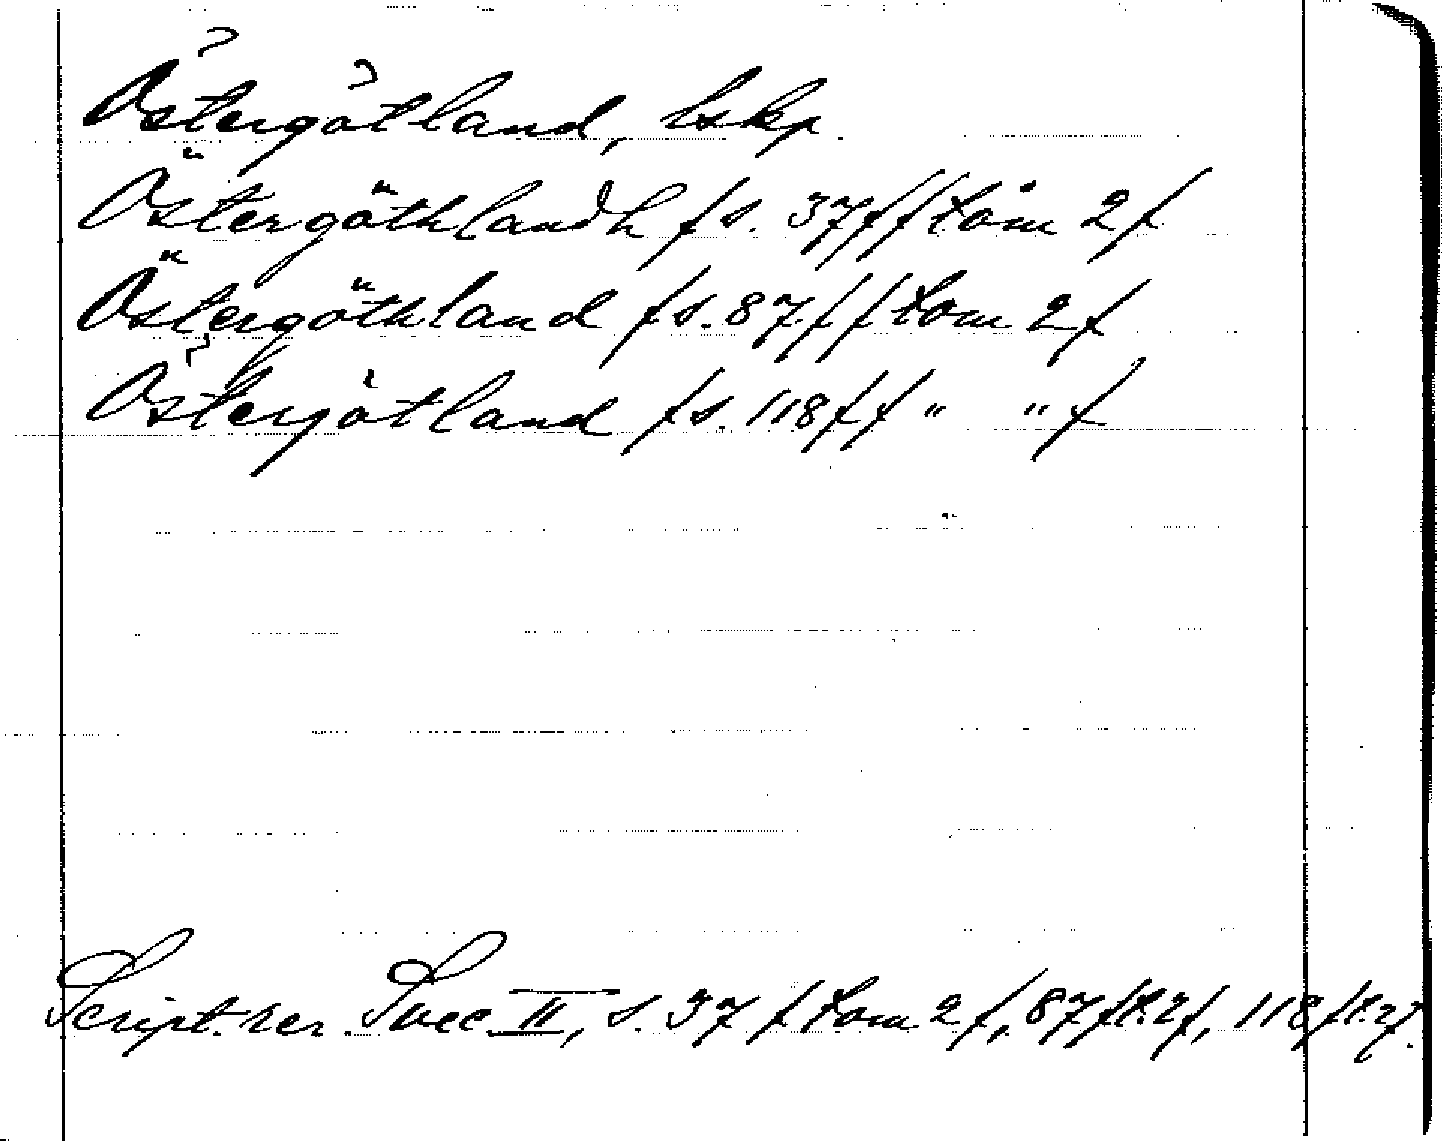 Östergötland, lskp.
Östergöthlandh (s. 37 ff (tom 2)
Östergöthland (s. 87 ff (tom 2)
Östergötland (s. 118 ff " " )
Script. rer. Svec. II, s. 37 (tom 2), 87 (t. 2), 118 (t. 2).